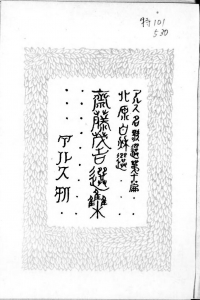 特101
530
アルス名歌選第十篇
北原白秋選
齋藤茂吉選集
アルス刊